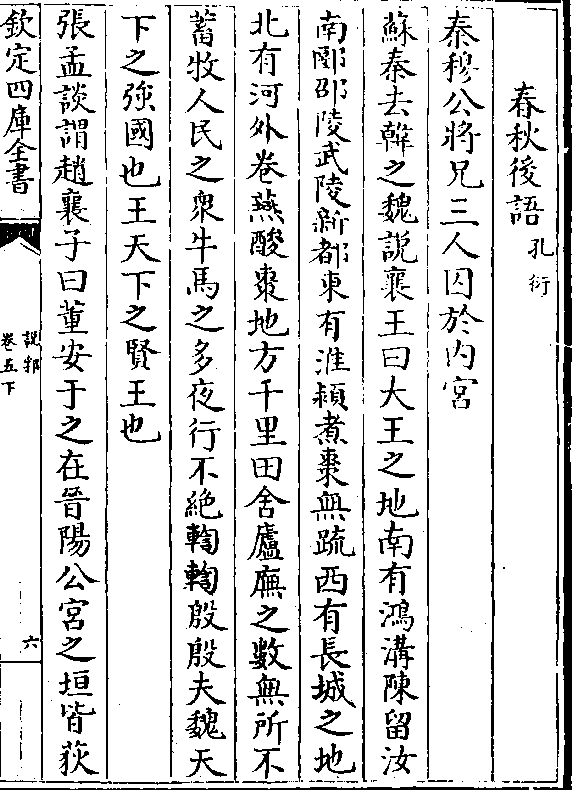 春秋後語 孔衍
秦穆公將兄三人囚於内宮
蘇秦去韓之魏說襄王曰大王之地南有鴻溝陳留汝
南郾邵陵武陵新都東有淮潁煮棗無䟽西有長城之地
北有河外卷燕酸棗地方千里田舍廬廡之數無所不
蓄牧人民之衆牛馬之多夜行不絶輷輷殷殷夫魏天
下之強國也王天下之賢王也
張孟談謂趙襄子曰董安于之在晉陽公宮之垣皆荻
欽定四庫全書
說郛
卷五下
六